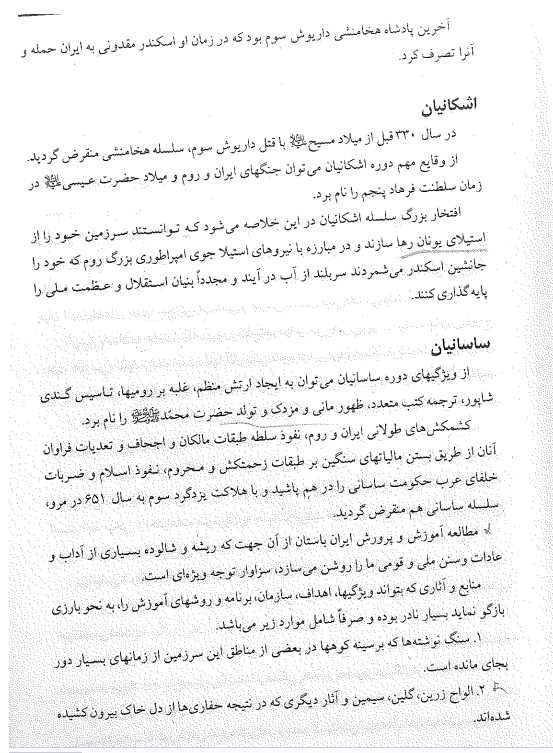 آخرین پادشاه هخامنشی داریوش سوم بود که در زمان او اسکندر مقدونی به ایران حمله و
آنرا تصرف کرد.
اشکانیان
در سال ۳۳۰ قبل از میلاد مسیحﷺ با قتل داریوش سوم، سلسله هخامنشی منقرض گردید.
از وقایع مهم دوره اشکانیان می‌توان جنگهای ایران و روم و میلاد حضرت عیسیﷺ در
زمان سلطنت فرهاد پنجم را نام برد.
افتخار بزرگ سلسله اشکانیان در این خلاصه می‌شود که توانستند سرزمین خود را از
استیلای یونان رها سازند و در مبارزه با نیروهای استیلا جوی امپراطوری بزرگ روم که خود را
جانشین اسکندر می‌شمردند سربلند از آب در آیند و مجدداً بنیان استقلال و عظمت ملی را
پایه‌گذاری کنند.
ساسانیان
از ویژگیهای دوره ساسانیان می‌توان به ایجاد ارتش منظم، غلبه بر رومیها، تاسیس گندی
شاپور، ترجمه کتب متعدد، ظهور مانی و مزدک و تولد حضرت محمّدﷺ را نام برد.
کشمکش‌های طولانی ایران و روم، نفوذ سلطه طبقات مالکان و اجحاف و تعدیات فراوان
آنان از طریق بستن مالیاتهای سنگین بر طبقات زحمتکش و محروم، نفوذ اسلام و ضربات
خلفای عرب حکومت ساسانی را در هم پاشید و با هلاکت یزدگرد سوم به سال ۶۵۱ در مرو،
سلسله ساسانی هم منقرض گردید.
مطالعه آموزش و پرورش ایران باستان از آن جهت که ریشه و شالوده بسیاری از آداب و
عادات وسنن ملی و قومی ما را روشن می‌سازد، سزاوار توجه ویژه‌ای است.
منابع و آثاری که بتواند ویژگیها، اهداف، سازمان، برنامه و روشهای آموزش را، به نحو بارزی
بازگو نماید بسیار نادر بوده و صرفاً شامل موارد زیر می‌باشد.
۱. سنگ نوشته‌ها که برسینه کوهها در بعضی از مناطق این سرزمین از زمانهای بسیار دور
بجای مانده است.
۲. الواح زرین، گلین، سیمین و آثار دیگری که در نتیجه حفاری‌ها از دل خاک بیرون کشیده
شده‌اند.